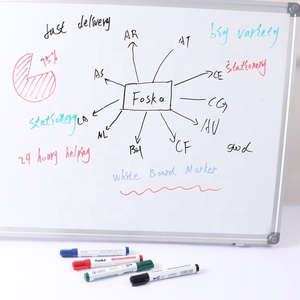 fast delivery
big variety
AR
AT
75%
AS
CE
stationery
Foska
CG
stationery
LA
AU
AL
BH
CF
good
24 hours helping
White Board Marker
Foska